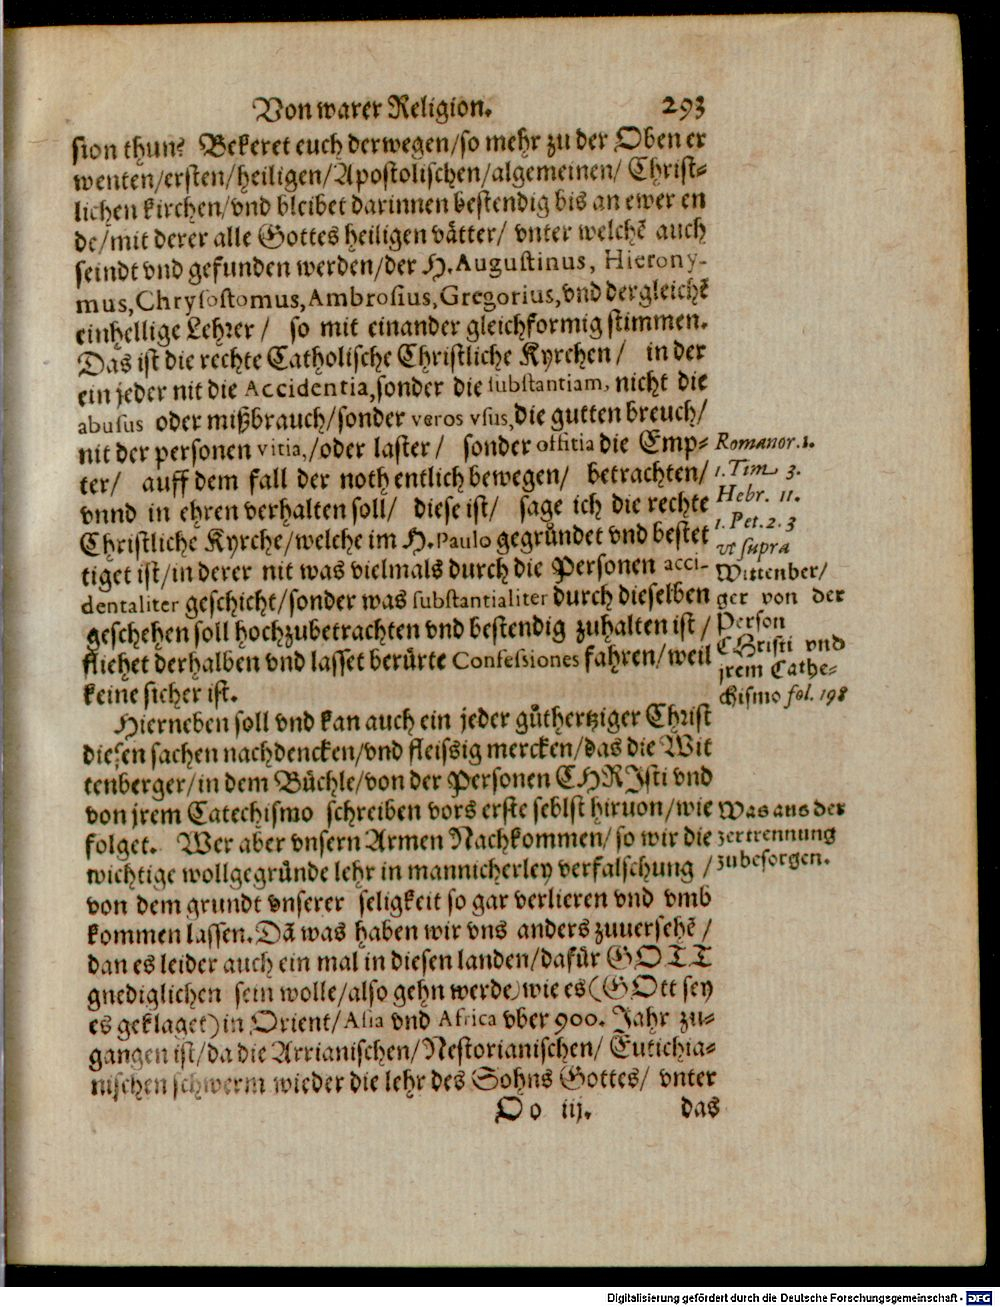 Von warer Religion. 293
sion thun? Bekeret euch derwegen/so mehr zu der Oben er
wenten/ersten/heiligen/Apostolischen/algemeinen/ Christ-
lichen kirchen/vnd bleibet darinnen bestendig bis an ewer en
de/mit derer alle Gottes heiligen vätter/ vnter welchē auch
seindt vnd gefunden werden/der H. Augustinus, Hierony-
mus, Chrysostomus, Ambrosius, Gregorius, vnd dergleichē
einhellige Lehrer/ so mit einander gleichformig stimmen.
Das ist die rechte Catholische Christliche Kyrchen/ in der
ein jeder nit die Accidentia, sonder die substantiam, nicht die
abusus oder mißbrauch/sonder veros vsus, die gutten breuch/
nit der personen vitia,/oder laster/ sonder offitia die Emp-
ter/ auff dem fall der noth entlich bewegen/ betrachten/
vnnd in ehren verhalten soll/ diese ist/ sage ich die rechte
Christliche Kyrche/welche im H. Paulo gegründet vnd bestet
tiget ist/in derer nit was vielmals durch die Personen acci-
dentaliter geschicht/sonder was substantialiter durch dieselben
geschehen soll hochzubetrachten vnd bestendig zuhalten ist/
fliehet derhalben vnd lasset berürte Confessiones fahren/weil
keine sicher ist.
Romanor. 1.
1. Tim 3.
Hebr. 11.
1. Pet. 2. 3
vt supra
Wittenber/
ger von der
Person
CHristi vnd
jrem Cathe-
chismo fol. 198
Hierneben soll vnd kan auch ein jeder güthertziger Christ
diesen sachen nachdencken/vnd fleissig mercken/das die Wit
tenberger/in dem Büchle/von der Personen CHRIsti vnd
von jrem Catechismo schreiben vors erste seblst hiruon/wie
folget. Wer aber vnsern Armen Nachkommen/so wir die
wichtige wollgegründe lehr in mannicherley verfalschung /
von dem grundt vnserer seligkeit so gar verlieren vnd vmb
kommen lassen. Dā was haben wir vns anders zuuersehē /
dan es leider auch ein mal in diesen landen/dafür GOTT
gnediglichen sein wolle/also gehn werde) wie es (GOtt sey
es geklaget) in Orient/Asia vnd Africa vber 900. Jahr zu-
gangen ist/da die Arrianischen/Nestorianischen/ Eutichia-
nischen schwerm wieder die lehr des Sohns Gottes/ vnter
Was aus der
zertrennung
zubesorgen.
Oo iij. das
Digitalisierung gefördert durch die Deutsche Forschungsgemeinschaft - DFG